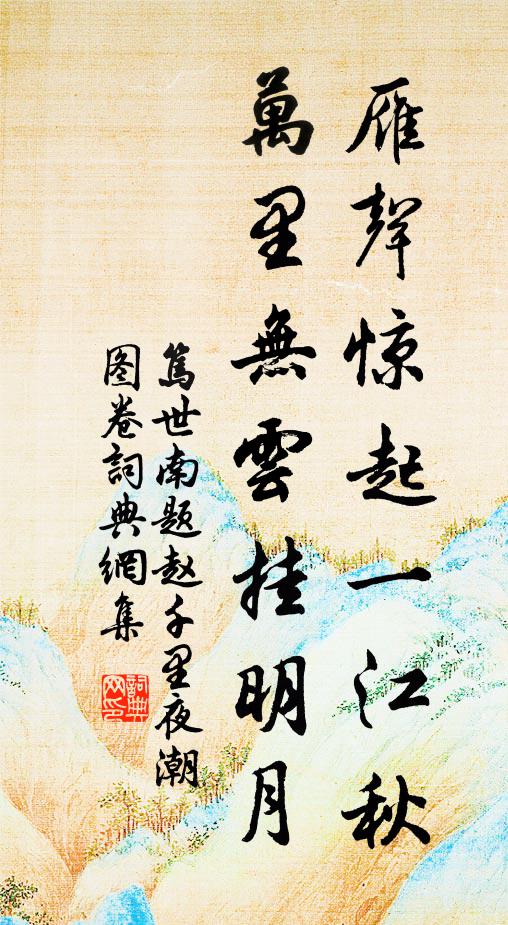 雁聲惊起一江秋
萬里無雲挂明月
篤世南题赵千里夜潮
图卷詞典網集
詞典
网印